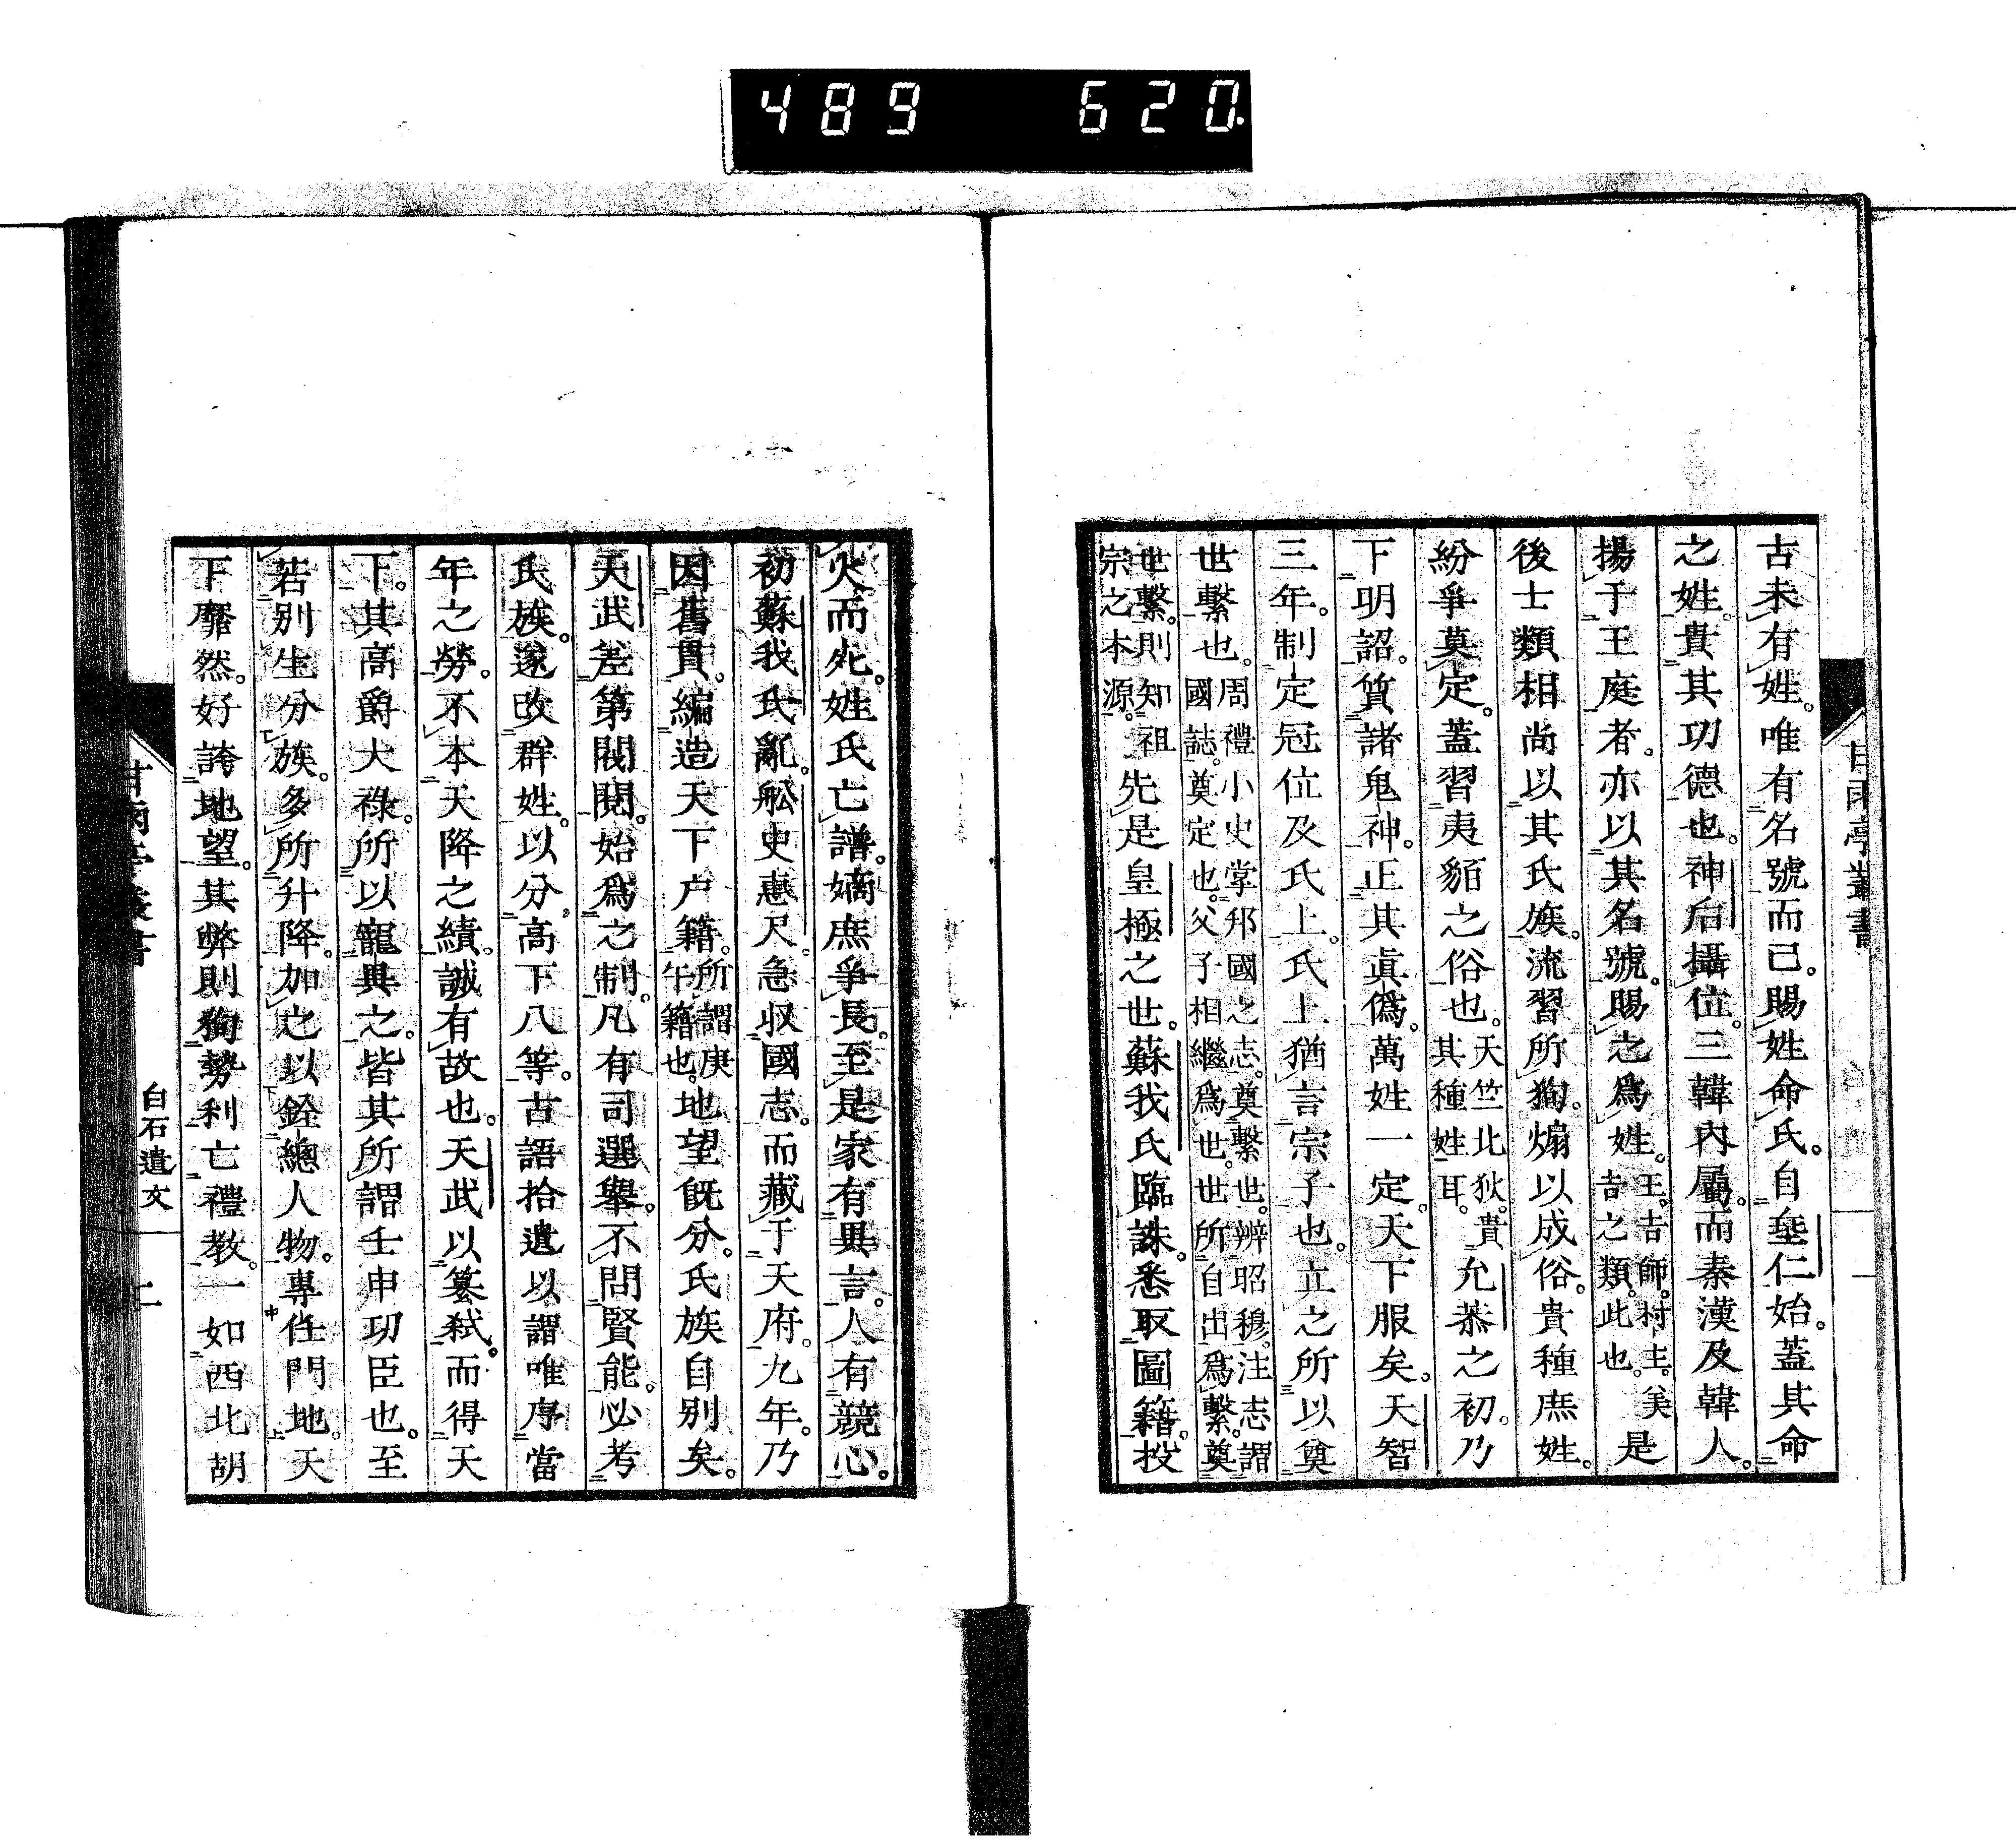 489 620
古未有姓。唯有名號而已。賜姓命氏。自垂仁始。蓋其命
之姓。貴其功德也。神后攝位。三韓內屬。而秦漢及韓人。
揚于王庭者。亦以其名號。賜之為姓。王。吉師。村主。吉之類。此也。是
後士類相尚以其氏族。流習所狥。煽以成俗。貴種庶姓。
紛爭莫定。蓋習夷貊之俗也。天竺北狄。貴其種姓耳。允恭之初。乃
下明詔。質諸鬼神。正其眞僞。萬姓一定。天下服矣。天智
三年。制定冠位及氏上。氏上猶言宗子也。立之所以奠
世繫也。周禮小史掌邦國之志。奠繫世。辨昭穆。注志謂國誌。奠定也。父子相繼爲世。世所自出爲繫。奠
世繫。則知祖宗之本源。先是皇極之世。蘇我氏臨誅。悉取圖籍。投
火而死。姓氏亡譜。嫡庶爭長。至是家有異言。人有競心。
初蘇我氏亂。舩史惠尺。急収國志。而藏于天府。九年。乃
因舊貫。編造天下户籍。所謂庚午籍也。地望旣分。氏族自別矣。
天武差第閥閱。始爲之制。凡有司選舉。不問賢能。必考
氏族。遂改群姓。以分高下八等。古語拾遺以謂唯序當
年之勞。不本天降之績。誠有故也。天武以篡弒。而得天
下。其高爵大祿。所以寵異之。皆其所謂壬申功臣也。至
若別生分族。多所升降。加之以銓總人物。專任門地。天
下靡然。好誇地望。其弊則狥勢利亡禮教。一如西北胡
甘雨亭叢書
白石遺文